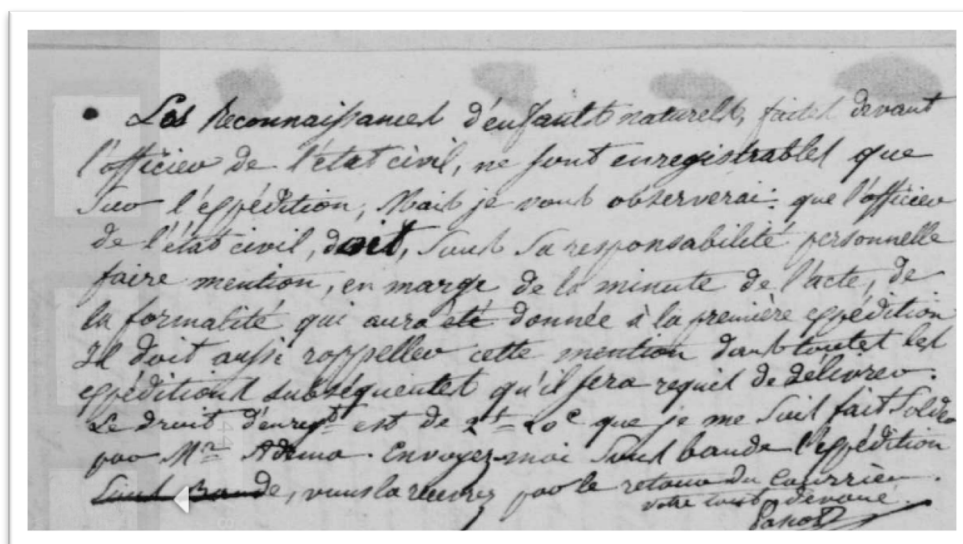 Les Reconnaissances d'enfants naturels, faites devant
l'officier de l'état civil, ne sont enregistrables que
sur l'expédition, Mais je vous observerai que l'officier
de l'état civil, doit, sous sa responsabilité personnelle
faire mention, en marge de la minute de l'acte, de
la formalité qui aura été donnée à la première expédition
Il doit aussi rappeller cette mention dans toutes les
expéditions subséquentes qu'il sera requis de délivrer.
Le droit d'enregt est de 2f 20c que je me suis fait solder
par Mr. Envoyez-moi sous bande l'expédition
sous bande, vous la recevrez par le retour du Courrier.
votre tout dévoué